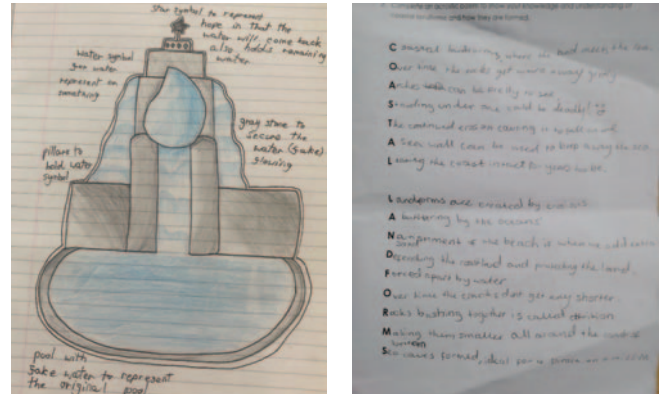 star symbol to represent
hope in that the
water will come back
also holds remaining
water
water symbol
gen water
represent on
something
gray stone to
secure the
water (fake)
flowing
pillars to
hold water
symbol
pool with
fake water to represent
the original pool
Complete an acrostic poem to show your knowledge and understanding of
coastal landforms and how they are formed.
Coastal landforms, where the land meets the sea.
Over time the rocks get worn away
Arches can be tricky to see
Standing under one could be deadly!
The continued erosion causing it to fall
A Sea wall can be used to keep away the sea
Leaving the coast intact for
Landforms are created by
A battering by the oceans
Nourishment is the beach is when we add extra
sand
Defending the coastland and protecting the land
Forced apart by water
Over time the cracks don't get any shorter.
Rocks bashing together is called attrition
Making them smaller all around the
Sea caves formed, ideal for a